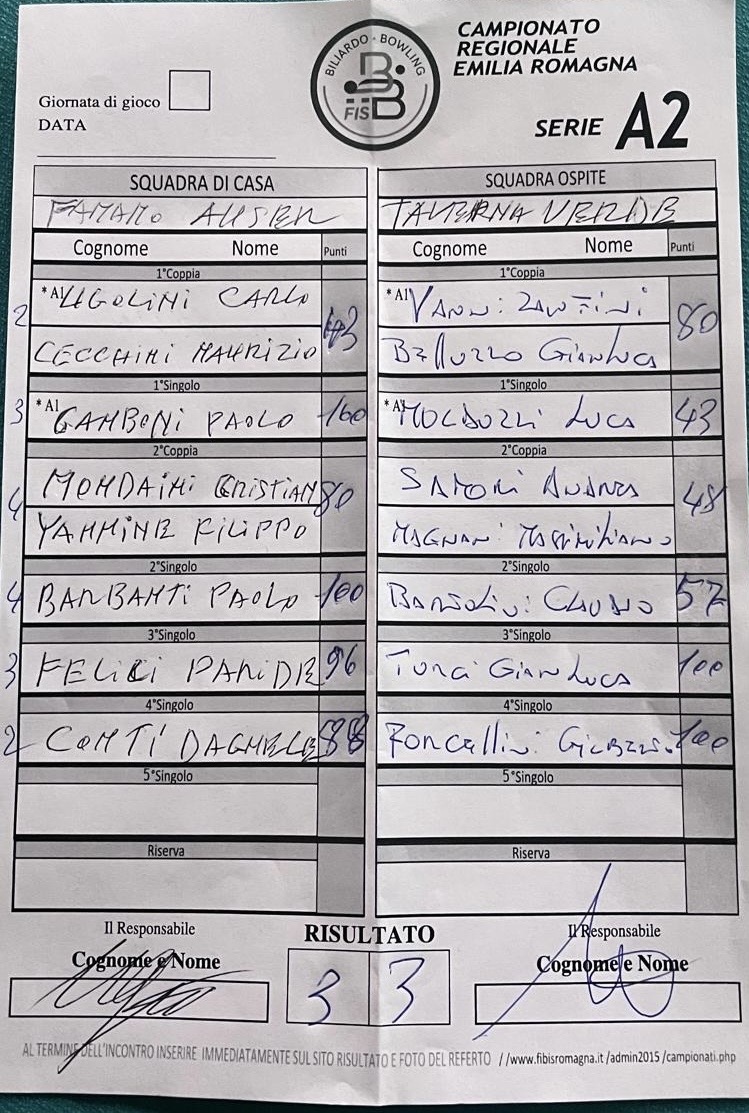 BILIARDO · BOWLING
FISBB
CAMPIONATO
REGIONALE
EMILIA ROMAGNA
SERIE A2
Giornata di gioco
DATA
SQUADRA DI CASA
SQUADRA OSPITE
TAVERNA VERDE
Cognome Nome Punti
Cognome Nome Punti
1°Coppia
1°Coppia
2 *A1 UGOLINI CARLO
*A1 VANNi ZANTiNi 80
CECCHINI MAURIZIO
BELLUZZO GiANLUCA
1°Singolo
1°Singolo
3 *A1 GAMBONI PAOLO 100
*A1 LUCA 43
2°Coppia
2°Coppia
4 MONDAINI CRISTIAN 80
48
YAMMINE FILIPPO
MAGNANi MASSiMiLiANO
2°Singolo
2°Singolo
4 BARBANTI PAOLO 100
BARTOLiNi CLAUDIO 57
3°Singolo
3°Singolo
3 FELICI PARIDE 96
TURCi GiANLUCA 100
4°Singolo
4°Singolo
2 CONTI 88
RONCELLiNi 100
5°Singolo
5°Singolo
Riserva
Riserva
Il Responsabile
RISULTATO
Il Responsabile
Cognome e Nome
Cognome e Nome
3 3
AL TERMINE DELL'INCONTRO INSERIRE IMMEDIATAMENTE SUL SITO RISULTATO E FOTO DEL REFERTO //www.fibisromagna.it /admin2015 /campionati.php